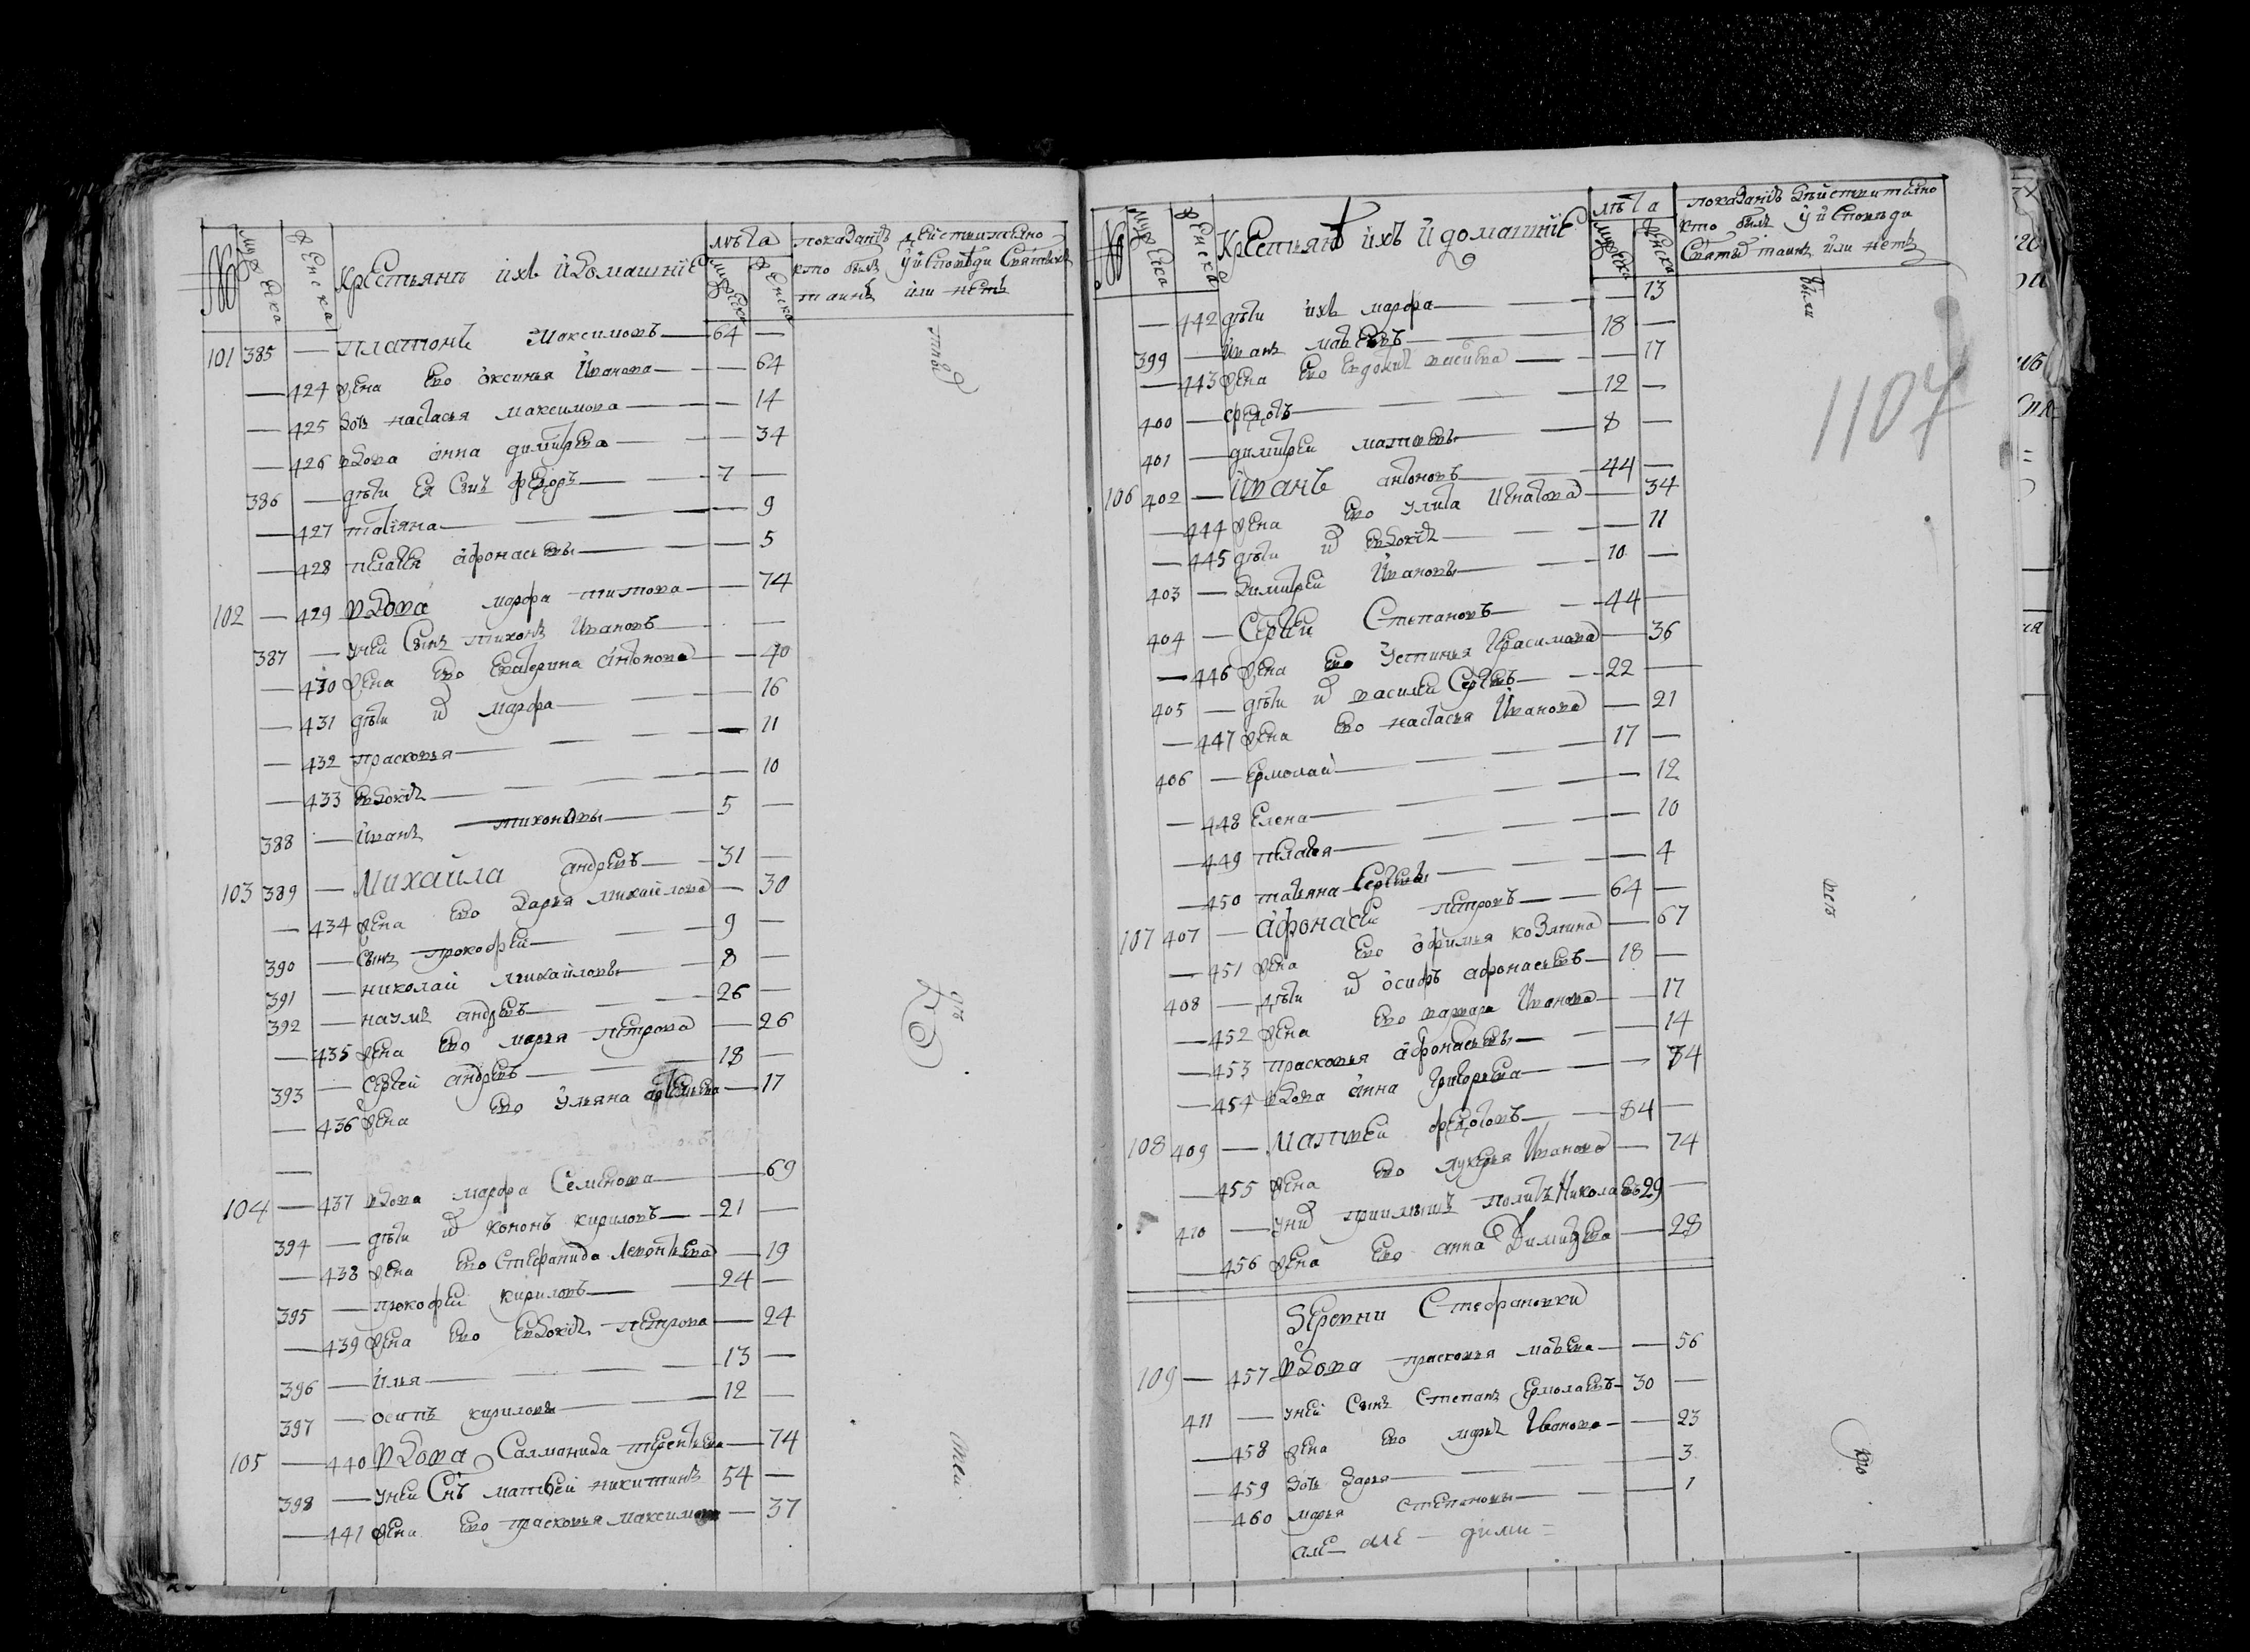 № мужеска женска Крестьянъ ихъ и домашние лѣта мужеска женска показание действително
кто былъ у исповѣди Святыхъ
таинъ или нетъ
101 385 — Платонъ Максимовъ — 64 —
— 424 жена ево Оксинья Иванова — — 64
— 425 дочь настасья максимова — — 14
— 426 вдова анна димитрева — — 34
386 — дѣти ея Сынъ федоръ — 7 —
— 427 татияна — — 9
— 428 пелагея афонасьевы — — 5
102 — 429 вдова марфа титова — — 74
387 — у ней Сынъ тихонъ Ивановъ — —
— 430 жена ево Екатерина антонова — — 40
— 431 дѣти их марфа — — 16
— 432 прасковья — — 11
— 433 евдокия — — 10
388 — иванъ тихоновы — 5 —
103 389 — Михайла андревъ — 31 —
— 434 жена ево дарья михайлова — 30
390 — сынъ прокофеи — 9 —
391 — николаи михайловы — 8 —
392 — наумъ андревъ — 26 —
— 435 жена ево марья петрова — 26
393 — Сергей андревъ — 18 —
— 436 жена ево ульяна — 17
—
104 — 437 вдова марфа Семенова — — 69
394 — дѣти их кононъ кириловъ — 21 —
— 438 жена ево Степанида Левонтьева — 19
395 — прокофеи кириловъ — 24 —
— 439 жена ево Евдокия петрова — 24
396 — илья — 13 —
397 — осипъ кириловы — 12 —
105 — 440 вдова Салманида терентьева — 74
398 — у ней Снъ матвеи никитинъ 54 —
— 441 жена ево прасковья максимова — 37
№ мужеска женска Крестьянъ ихъ и домашние лѣта мужеска женска показание дѣйствително
кто былъ у исповѣди
Святыхъ таинъ или нетъ
были
1107
— 442 дѣти ихъ марфа — — 13
399 — иванъ матвевъ — 18 —
— 443 жена ево евдокия васильева — — 17
400 — федотъ — 12 —
401 — димитреи матвевы — 8 —
106 402 — Иванъ антоновъ — 44 —
— 444 жена ево улита Игнатова — 34
— 445 дѣти их евдокия — — 11
403 — димитреи Ивановы — 10 —
404 — Сергеи Степановъ — 44 —
— 446 жена ево устинья Герасимова — 36
405 — дѣти их василеи Сергевъ — 22 —
— 447 жена ево настасья Иванова — 21
406 — ермолай — 17 —
— 448 Елена — — 12
— 449 пелагея — — 10
— 450 татьяна Сергевы — — 4
107 407 — афонасеи петровъ — 64 —
— 451 жена ево офимья козмина — 67
408 — дѣти их осифъ афонасьевъ — 18 —
— 452 жена ево варвара Иванова — 17
— 453 прасковья афонасьевы — — 14
— 454 вдова анна Григорьева — — 74
108 409 — Матвеи федотовъ — 84 —
— 455 жена ево лукерья Иванова — 74
410 — у них приимышъ Николаевъ 29 —
— 456 жена ево анна димитрева — 28
Деревни Стефановки
109 — 457 вдова прасковья матвева — — 56
411 — у ней Сынъ Степанъ Ермолаевъ — 30 —
— 458 жена ево марья Иванова — — 23
— 459 дочь дарья — — 3
— 460 марья степановы — — 1